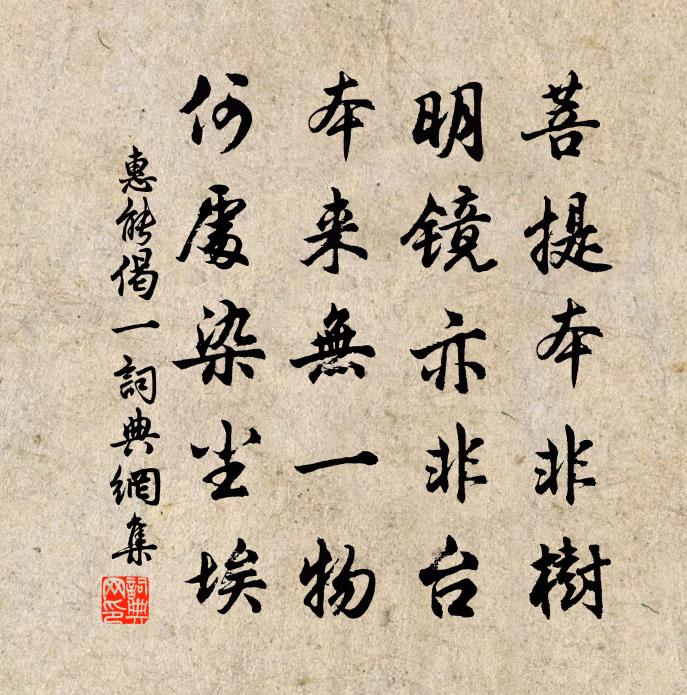 菩提本非樹
明镜亦非台
本来無一物
何處染尘埃
惠能偈一詞典網集
詞典网印